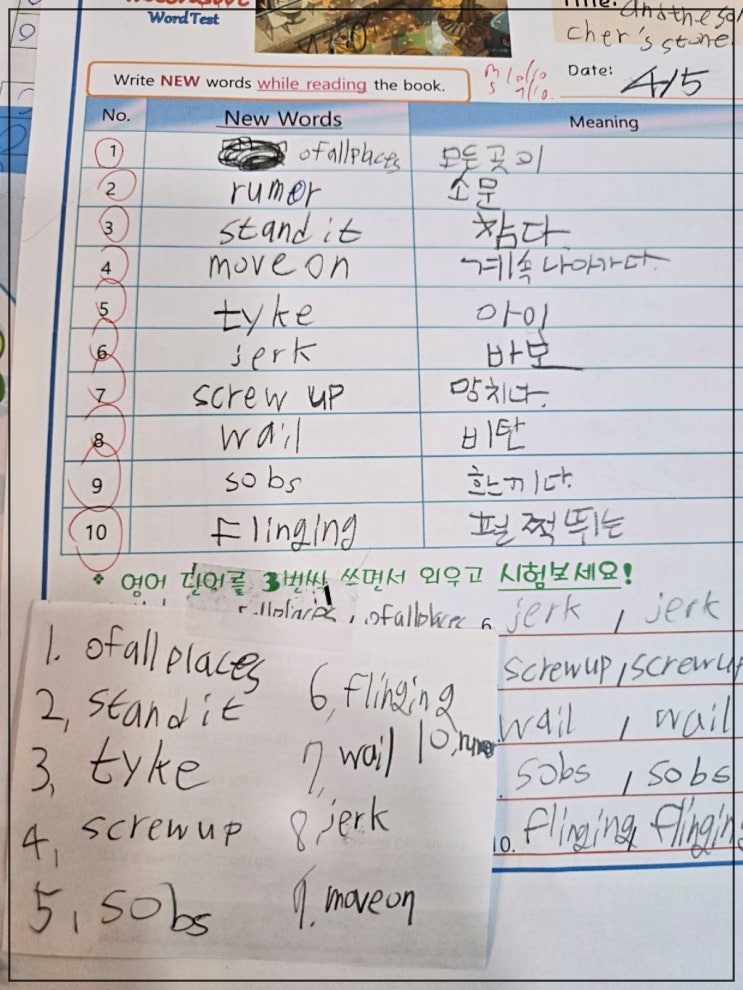 Word Test
Title: and the so
cher's stone
Write NEW words while reading the book.
Date: 4/5
No. New Words Meaning
1 ofallplaces 모든 곳이
2 rumor 소문
3 stand it 참다
4 move on 계속 나아가다
5 tyke 아이
6 jerk 바보
7 screw up 망치다
8 wail 비탄
9 sobs 흐느끼다
10 Flinging 펄쩍 뛰는
❖ 영어 단어를 3번씩 쓰면서 외우고 시험보세요!
, ofallplaces 6. jerk , jerk
screwup, screwup
wail , wail
sobs , sobs
10. flinging, flinging
1. ofall places
2, stand it
3, tyke
4, screwup
5, sobs
6, flinging
7, wail
8, jerk
9. moveon
10, rumor